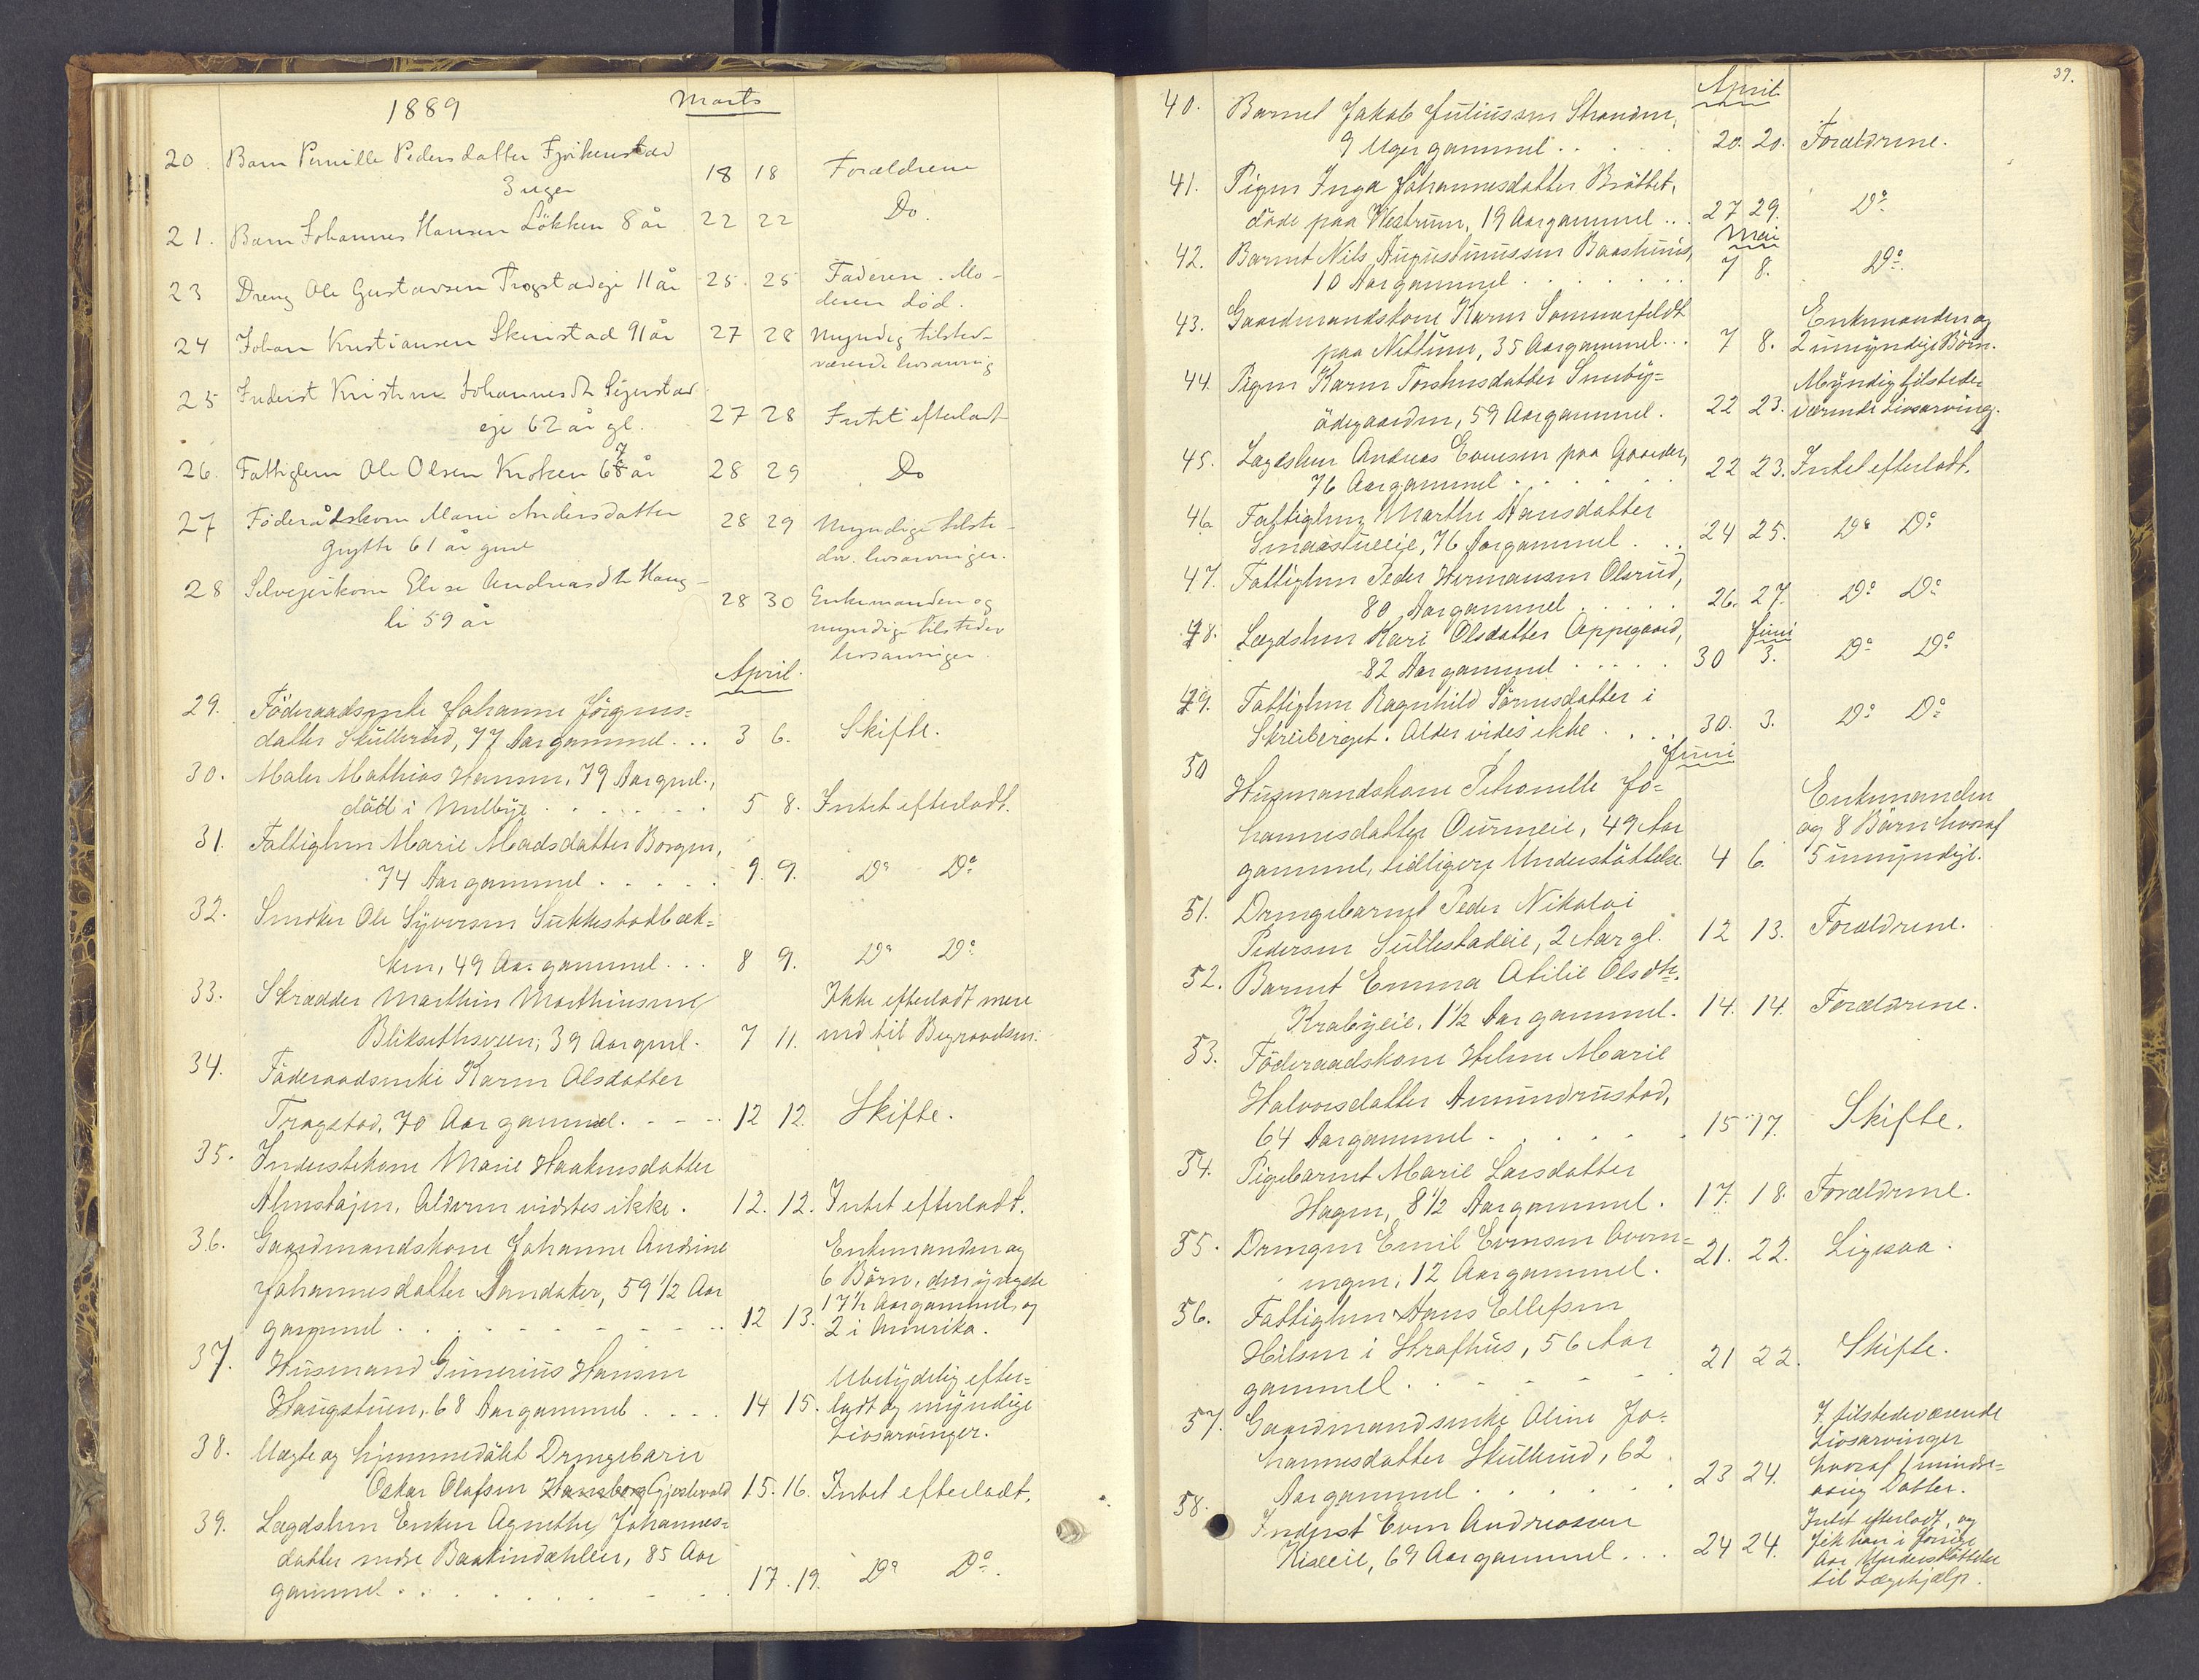 1889 Marts
20. Barn Pernille Pedersdatter Fjeikenstad
3 uger 18 18 Forældrene
21. Barn Johannes Hansen Lökken 8 år 22 22 Do.
23 Dreng Ole Gustavsen Trogstadeje 11 år 25. 25 Faderen. Mo-
deren död.
24 Johan Kristiansen Skenstad 91 år 27 28 Myndig tilsted-
værende livsarving
25 Inderst Kristine Johannesdtr Sijerstad
eje 62 år gl. 27 28 Intet efterladt
26. Fattiglem Ole Olsen Kroken 67 år 28 29 Do
27 Föderådskone Marie Andersdatter 28 29 Myndige tilste-
Grytte 61 år gml dev. livsarvinger.
28 Selvejerkone Elise Andreasdtr Haug-
li 59 år 28 30 Enkemanden og
myndige tilstedev
livsarvinger.
April.
29. Föderaadsenke Johanne Jörgens-
datter Skullerud, 77 Aar gammel... 3 6. Skifte.
30. Maler Mathias Hansen, 79 Aar gml.,
död i Melbye 5 8. Intet efterladt.
31. Fattiglem Marie Madsdatter Borgen,
74 Aar gammel..... 9. 9. Do Do
32. Snedker Ole Syversen Sukkestadbæk-
ken, 49 Aar gammel... 8 9. Do Do
33. Skrædder Marthin Marthinsen
Bliksethsveen, 39 Aar gml. 7 11. Ikke efterladt mere
end til Begravelsen.
34. Föderaadsenke Karen Olsdatter
Trogstad, 70 Aar gammel. - - - 12 12. Skifte.
35. Inderstekone Marie Haakensdatter
Almstajen, Alderen vidstes ikke. 12. 12. Intet efterladt.
36. Gaardmandskone Johanne Andrine
Johannesdatter Sandaker, 59 1/2 Aar
gammel 12 13. Enkemanden og
6 Börn, den yngste
17 1/2 Aar gammel, og
2 i Amerika.
37. Husmand Gunerius Hansen
Haugstuen, 68 Aar gammel.... 14 15. Ubetydelig efter-
ladt og myndige
Livsarvinger.
38. Uægte og hjemmedöbt Drengebarn
Oskar Olafsen Gjestvold 15. 16. Intet efterladt.
39. Lægdslem Enken Agnethe Johannes-
datter nedre Baatindæhlen, 85 Aar
gammel 17. 19. Do Do.
39.
April
40. Barnet Jakob Juliussen Stranden,
9 Uger gammel 20. 20. Forældrene.
41. Pigen Inga Johannesdatter Bråttet,
döde paa Westrum, 19 Aar gammel... 27 29. Do
Mai
42. Barnet Nils Augustinussen Baashuus,
10 Aar gammel 7 8. Do.
43. Gaardmandskone Karen Sommerfeldt
paa Nettum, 35 Aar gammel... 7 8. Enkemanden og
2 umyndige Börn.
44. Pigen Karen Torstensdatter Sneby-
ödegaarden, 59 Aar gammel. 22 23. Myndig tilstede-
værende Livsarving.
45. Lægdslem Andreas Evensen paa Gaarder,
76 Aar gammel 22 23. Intet efterladt.
46. Fattiglem Marthe Hansdatter
Smaastueeie, 76 Aar gammel... 24 25. Do Do
47. Fattiglem Peder Hermansen Olerud,
80 Aar gammel 26. 27. Do Do
48. Lægdslem Kari Olsdatter Oppegaard, Juni
82 Aar gammel 30 3. Do Do
49. Fattiglem Ragnhild Sörensdatter i
Skreiberget. Alder vides ikke.... 30. 3. Do Do
Juni
50 Husmandskone Pernille Jo-
hannesdatter Ourneie, 49 Aar
gammel, tidligere Understöttelse 4 6. Enkemanden
og 8 Börn hvoraf
5 umyndige.
51. Drengebarnet Peder Nikolai
Pedersen Sullestadeie, 2 Aar gl. 12 13. Forældrene.
52. Barnet Emma Otilie Olsdtr.
Krabyeie, 1 1/2 Aar gammel. 14. 14. Forældrene.
53. Föderaadskone Helene Marie
Halvorsdatter Amundrustad,
64 Aar gammel 15 17. Skifte.
54. Pigebarnet Marie Larsdatter
Hagen, 8 1/2 Aar gammel. 17. 18. Forældrene.
55. Drengen Emil Evensen
12 Aar gammel. 21. 22. Ligesaa.
56. Fattiglem Hans Ellefsen
Hilsen i Strafhus, 56 Aar
gammel 21 22. Skifte.
57. Gaardmandsenke Oline Jo-
hannesdatter Skullerud, 62
Aar gammel 23 24. 7 tilstedeværende
Livsarvinger
hvoraf 1 minder-
aarig Datter.
58. Inderst Even Andreassen
Kiseeie, 69 Aar gammel... 24 24. Intet efterladt, og
fik han i forrige
Aar Understöttelse
til Lægehjælp.